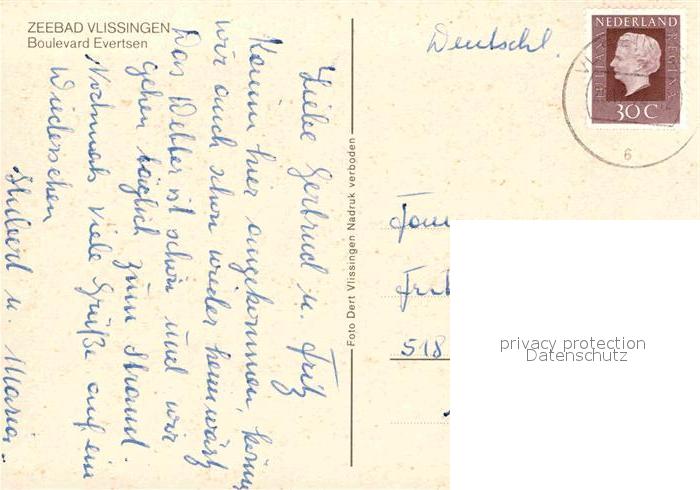 ZEEBAD VLISSINGEN
Boulevard Evertsen
Liebe Gertrud u. Fritz
Kaum hier angekommen,
wir auch schon wieder heimwärts
Das Wetter ist schön und wir
gehen täglich zum Strand.
Nochmals viele Grüße auf ein
Wiedersehen
Hubert u. Maria.
Foto Dert Vlissingen Nadruk verboden
Deutschl.
NEDERLAND
JULIANA
REGINA
30 C
6
Fam
518
privacy protection
Datenschutz